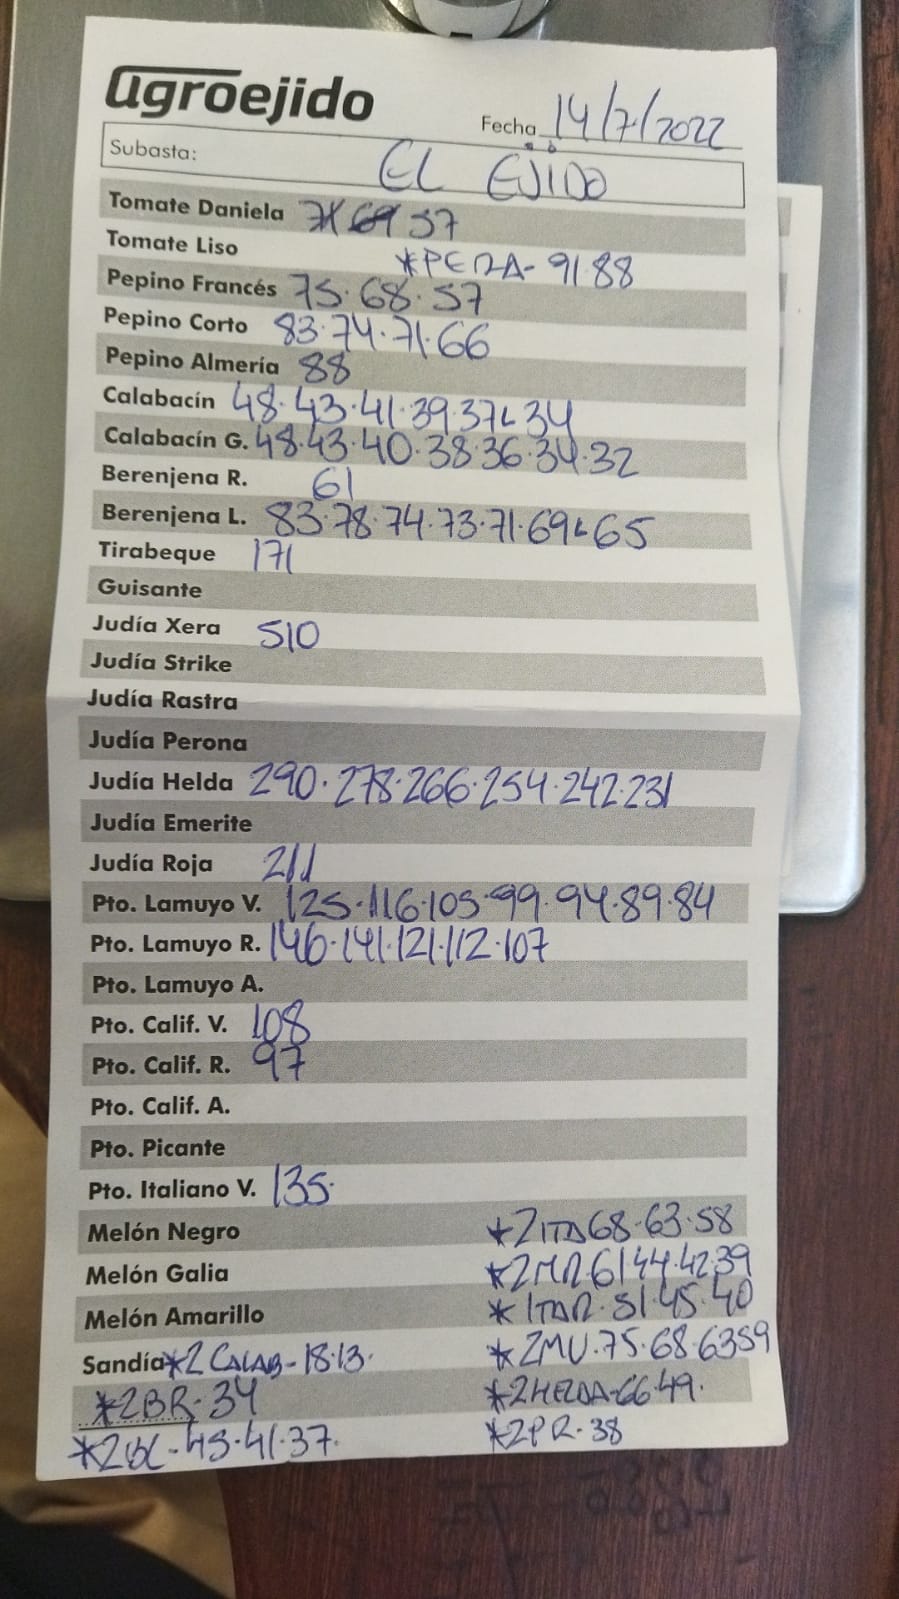 agroejido
Fecha 14/7/2022
Subasta: EL EJIDO
Tomate Daniela 57
Tomate Liso *PERA-91.88
Pepino Francés 75.68.57
Pepino Corto 83.74.71.66
Pepino Almería 88
Calabacín 48.43.41.39.37L34
Calabacín G. 48.43.40.38.36.34.32
Berenjena R. 61
Berenjena L. 83.78.74.73.71.69L65
Tirabeque 171
Guisante
Judía Xera 510
Judía Strike
Judía Rastra
Judía Perona
Judía Helda 290.278.266.254.242.231
Judía Emerite
Judía Roja 211
Pto. Lamuyo V. 125.116.105.99.94.89.84
Pto. Lamuyo R. 146.141.121.112.107
Pto. Lamuyo A.
Pto. Calif. V. 108
Pto. Calif. R. 97
Pto. Calif. A.
Pto. Picante
Pto. Italiano V. 135.
Melón Negro *2ITA 68.63.58
Melón Galia *2MR.61 44.42.39
Melón Amarillo *ITAR.51.45.40
Sandía *2 CALAB-18.13. *2MV.75.68.63 59
*2BR.34 *2HELDA-66.49.
*2BL-45.41.37. *2PR-38